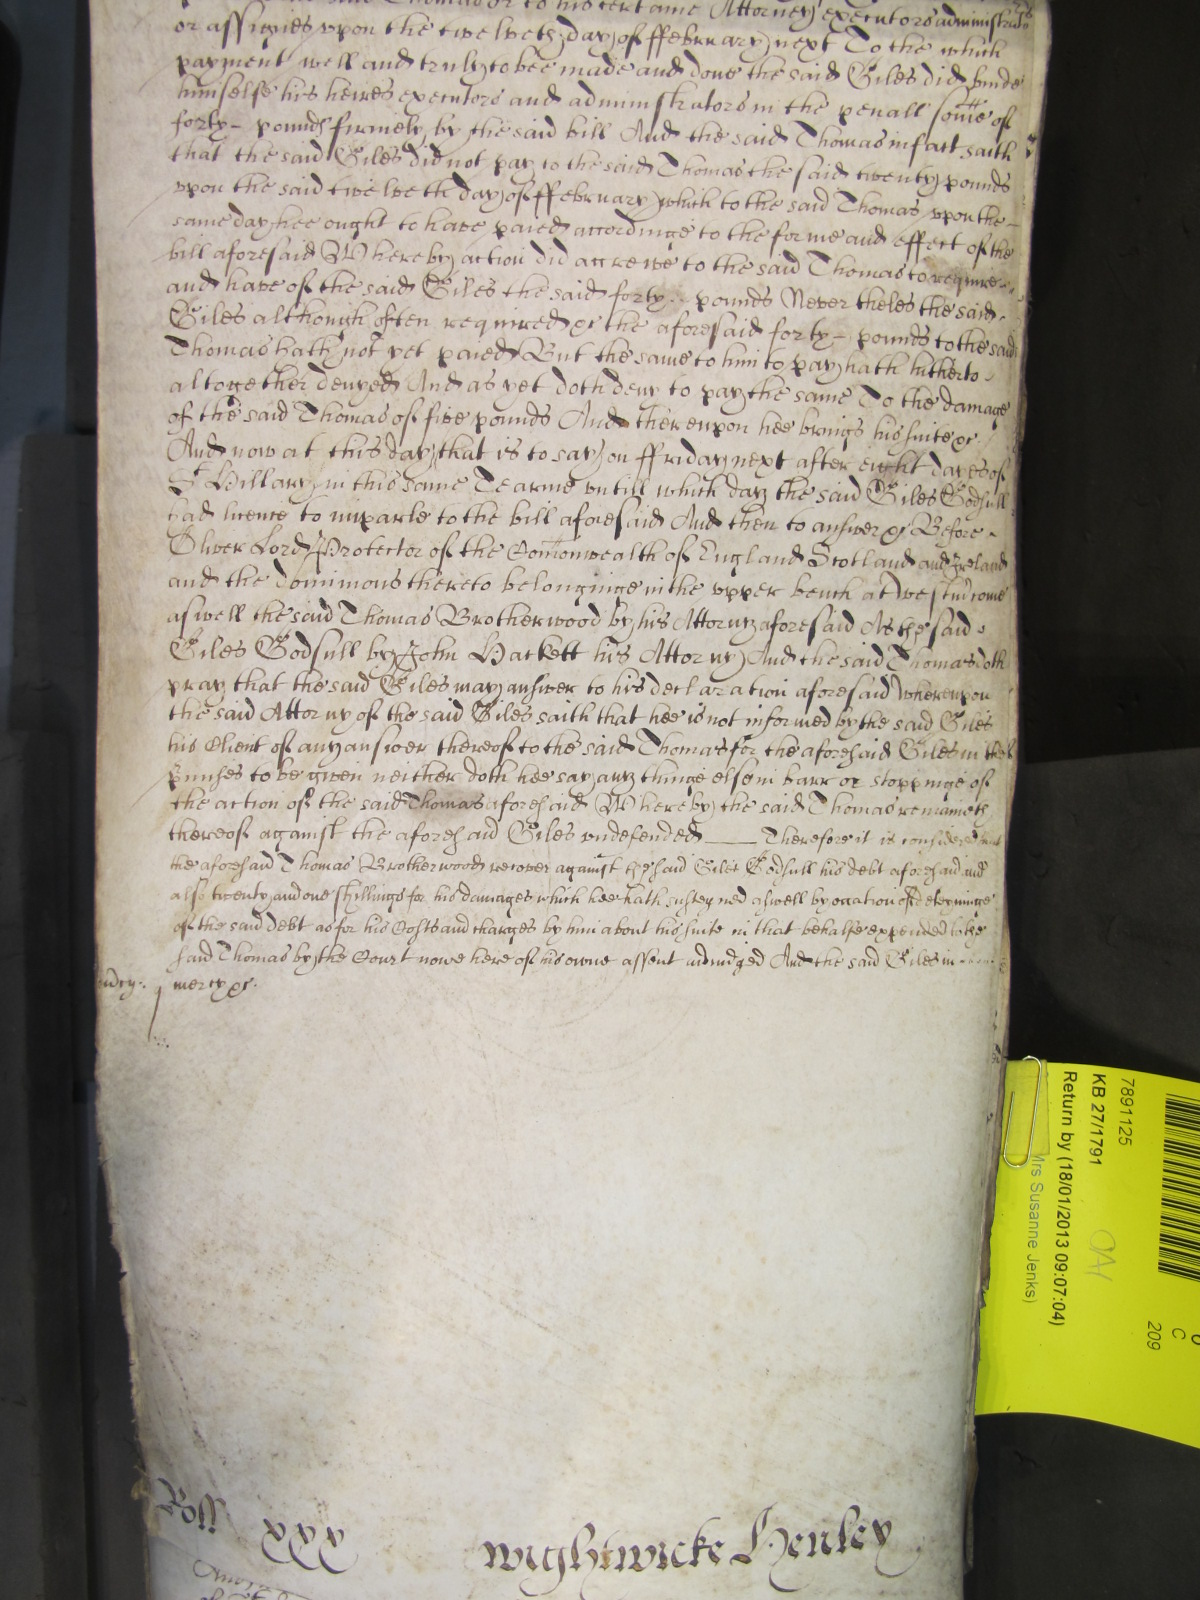 said Thomas or to his certaine Attorney executors administrators
or assignes vpon the twelveth day of ffebruary next To the which
payment well and truly to bee made and done the said Giles did binde
himselfe his heires executors and administrators in the penall some of
forty – pounds firmely by the said bill And the said Thomas in fact saith
that the said Giles did not pay to the said Thomas the said twenty pounds
vpon the said twelveth day of ffebruary which to the said Thomas vpon the –
same day hee ought to have paied accordinge to the forme and effect of the
bill aforesaid Whereby action did accrewe to the said Thomas to require
and have of the said Giles the said forty – pounds Never theles the said
Giles although often required &c the aforesaid forty – pounds to the said
Thomas hath not yet paied But the same to him to pay hath hitherto
altogether denyed And as yet doth deny to pay the same To the damage
of the said Thomas of five pounds And thereupon hee brings his suite &c
And now at this day that is to say on ffriday next after eight dayes of
St Hillary in this same Tearme vntill which day the said Giles Godsull
had licence to imparle to the bill aforesaid And then to answer &c Before
Oliver Lord Protector of the Comonwealth of England Scotland and Ireland
and the dominions thereto belonginge in the vpper bench at Westm come
aswell the said Thomas Brotherwood by his Attorny aforesaid As the said
Giles Godsull by John Hackett his Attorny And the said Thomas doth
pray that the said Giles may answer to his declaration aforesaid whereupon
the said Attorny of the said Giles saith that hee is not informed by the said Giles
his Client of any answer thereof to the said Thomas for the aforesaid Giles in the
pmises to be given neither doth hee say any thinge else in barr or stoppinge of
the action of the said Thomas aforesaid Whereby the said Thomas remaineth
thereof against the aforesaid Giles vndefended —— Therefore it is considered that
the aforesaid Thomas Brotherwood recover against the said Giles Godsull his debt aforesaid and
also twenty and one shillings for his damages which hee hath susteyned aswell by occation of deteyninge
of the said debt as for his Costs and charges by him about his suite in that behalfe expended to the
said Thomas by the Court nowe here of his owne assent adiudged And the said Giles in
mercy &c
Roll xxx Wightwicke Henley
7891125
KB 27/1791
Return by (18/01/2013 09:07:04)
Mrs Susanne Jenks)
C
209